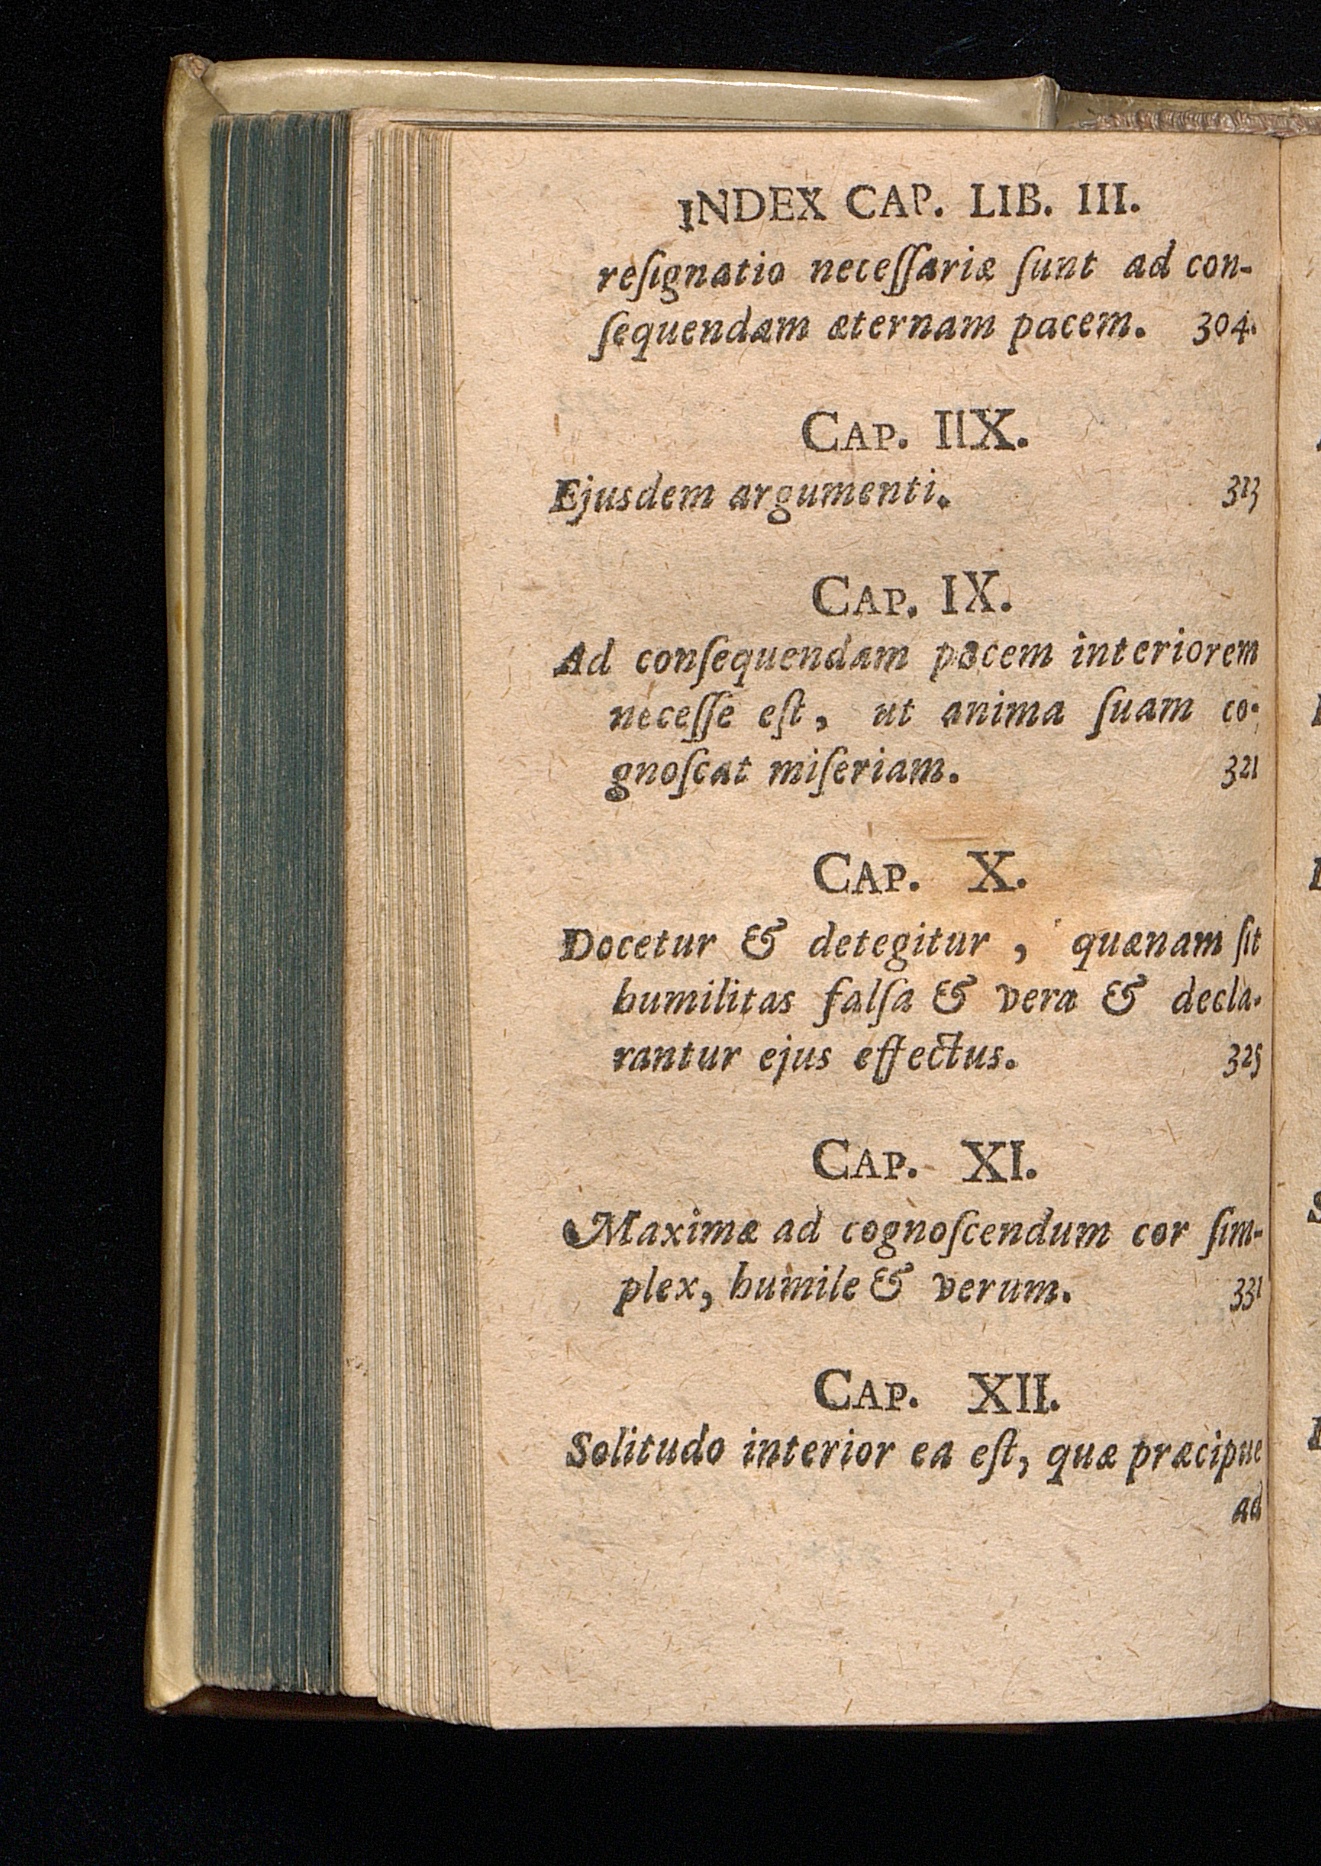 INDEX CAP. LIB. III.
reſignatio neceſſariæ ſunt ad con-
ſequendam æternam pacem. 304.
CAP. IIX.
Ejusdem argumenti. 313
CAP. IX.
Ad conſequendam pacem interiorem
neceſſe eſt, ut anima ſuam co-
gnoſcat miſeriam. 321
CAP. X.
Docetur & detegitur, quænam ſit
humilitas falſa & vera & decla-
rantur ejus effectus. 325
CAP. XI.
Maximæ ad cognoſcendum cor ſim-
plex, humile & verum. 331
CAP. XII.
Solitudo interior ea eſt, quæ præcipue
ad